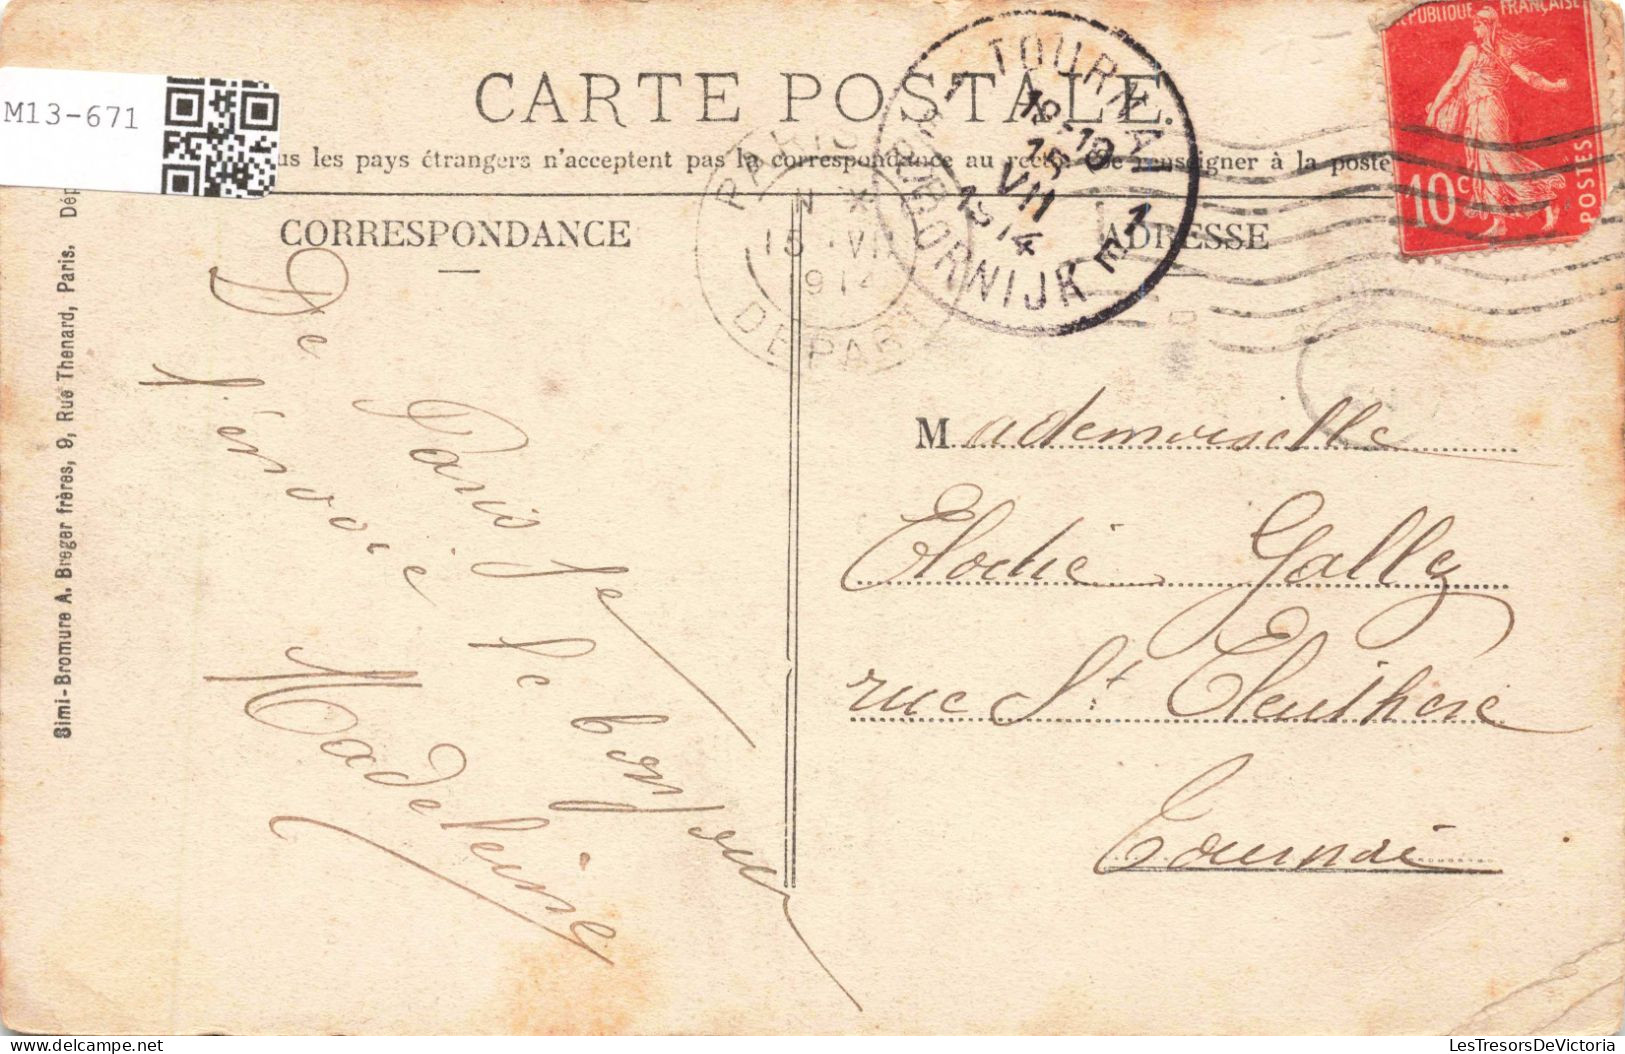 M13-671
CARTE POSTALE.
us les pays étrangers n'acceptent pas la correspondance au recto. Se renseigner à la poste
CORRESPONDANCE
ADRESSE
RÉPUBLIQUE FRANÇAISE
10c
POSTES
TOURNAI 1
18-19
15
VII
1914
DOORNIJK E 1
PARIS
15 VII
1914
DEPART
Simi-Bromure A. Breger frères, 9, Rue Thenard, Paris. Dép
De Paris je
t'envoie le bonjour
Madeleine
Mademoiselle
Elodie Gally
rue St Eleuthère
Tournai
LesTresorsDeVictoria